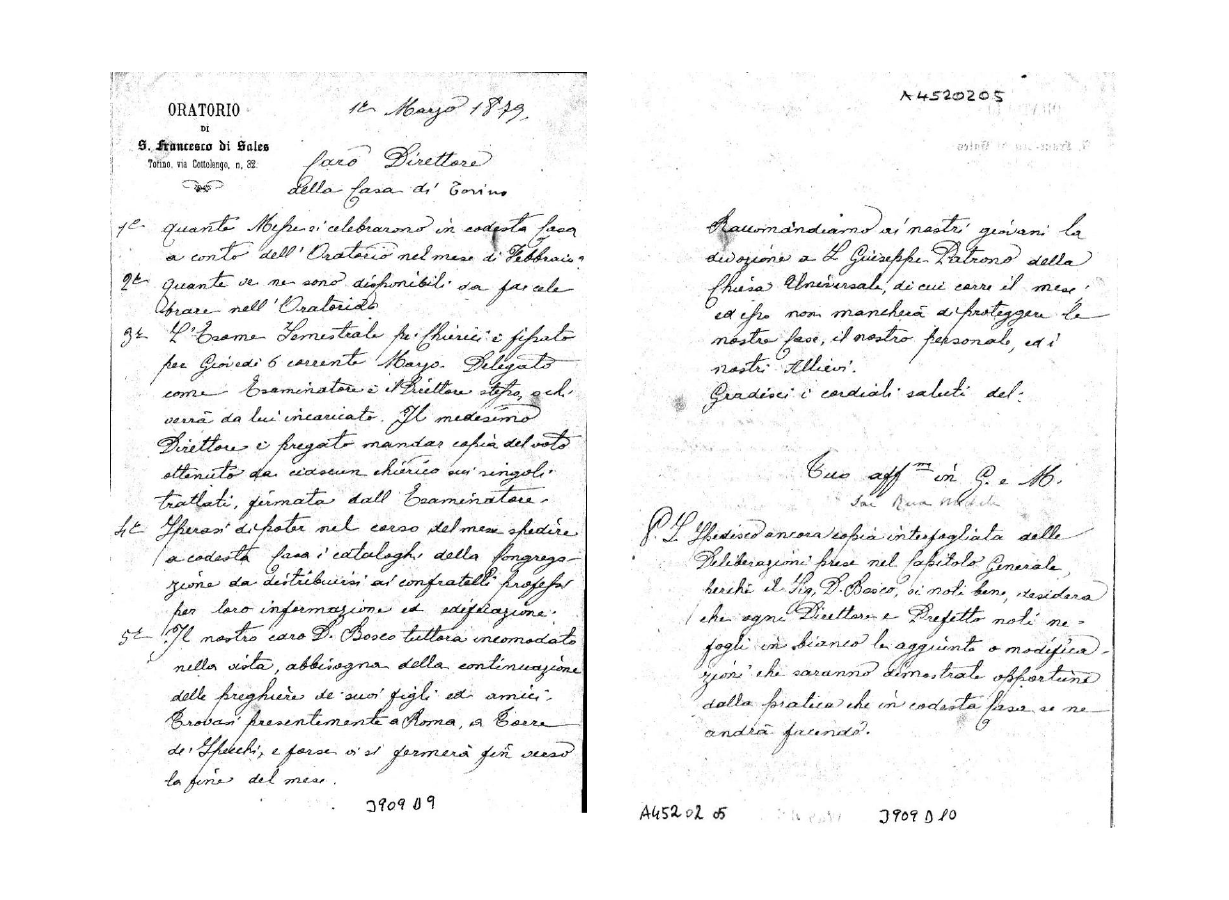 ORATORIO
DI
S. Francesco di Sales
Torino, via Cottolengo, n. 32.
1º Marzo 1879.
Caro Direttore
della Casa di Torino
1º quante Messe si celebrarono in codesta Casa
a conto dell'Oratorio nel mese di Febbraio.
2º quante ve ne sono disponibili da far cele
brare nell'Oratorio
3º L'Esame Semestrale pei Chierici è fissato
per Giovedì 6 corrente Marzo. Delegato
come Esaminatore è il Direttore stesso, o chi
verrà da lui incaricato. Il medesimo
Direttore è pregato mandar copia del voto
ottenuto da ciascun chierico sui singoli
trattati, firmata dall'Esaminatore.
4º Sperasi di poter nel corso del mese spedire
a codesta Casa i cataloghi della Congrega-
zione da distribuirsi ai confratelli professi
per loro informazione ed edificazione.
5º Il nostro caro D. Bosco tuttora incomodato
nella vista, abbisogna della continuazione
delle preghiere de' suoi figli ed amici.
Trovasi presentemente a Roma, a Torre
de' Specchi, e forse vi si fermerà fin verso
la fine del mese.
J909 D9
A4520205
Raccomandiamo ai nostri giovani la
divozione a S. Giuseppe Patrono della
Chiesa Universale, di cui corre il mese
ed esso non mancherà di proteggere le
nostre Case, il nostro personale, ed i
nostri Allievi.
Gradisci i cordiali saluti del:
Tuo aff.mo in G. e M.
Sac Rua Michele
P.S. Spedisco ancora copia interfogliata delle
Deliberazioni prese nel Capitolo Generale,
perchè il Sig. D. Bosco, si noti bene, desidera
che ogni Direttore e Prefetto noti ne-
fogli in bianco le aggiunte o modifica-
zioni che saranno dimostrate opportune
dalla pratica che in codesta Casa se ne
andrà facendo.
A452 02 05
J909 D10